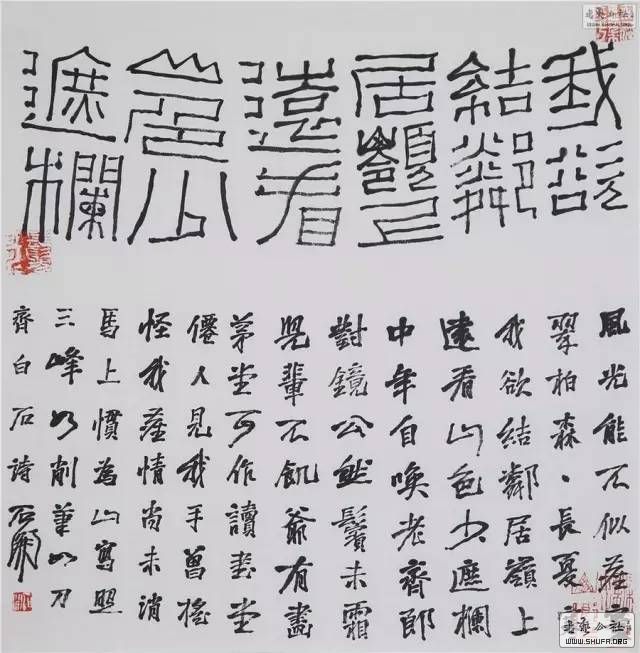 我欲
結鄰
居嶺上
遠看
山色少
遮欄
風光能不似廬
翠柏森森長夏
我欲結鄰居嶺上
遠看山色少遮欄
中年自喚老齊郎
對鏡公然鬢未霜
兒輩不飢爺有畫
茅堂可作讀書堂
僊人見我手曾搖
怪我塵情尚未消
馬上慣為山寫照
三峰如削筆如刀
齊白石詩 石開
WWW.SHUFA.ORG